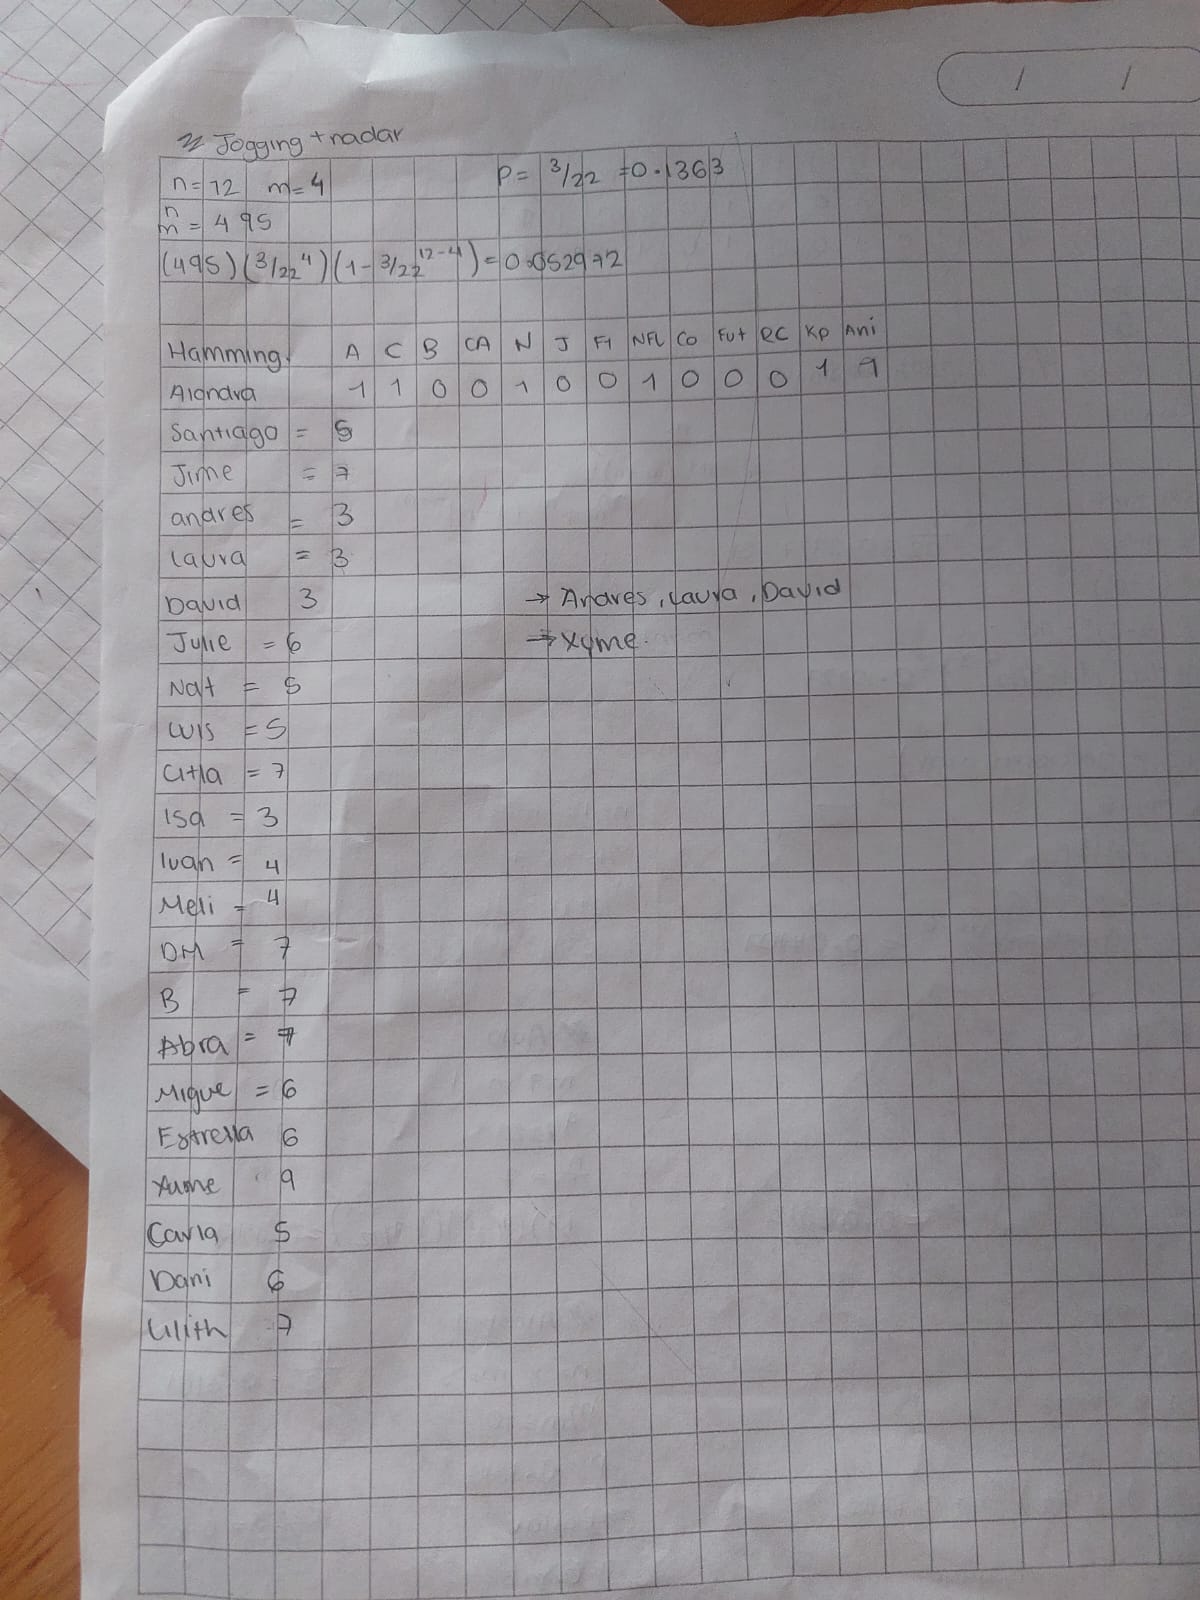 Jogging + nadar
n=12 m=4 P= 3/22 =0.1363
n
m = 495
(495)(3/22^4)(1-3/22^12-4)=0.052972
Hamming. A C B CA N J F1 NFL Co Fut RC KP Ani
Alondra 1 1 0 0 1 0 0 1 0 0 0 1 1
Santiago = 5
Jime = 7
andres = 3
Laura = 3
David 3 → Andres, Laura, David
Julie = 6 → Xyme.
Nat = 5
Luis = 5
Citla = 7
Isa = 3
Ivan = 4
Meli = 4
DM = 7
B = 7
Abra = 7
Migue = 6
Estrella 6
Xyme 9
Carla 5
Dani 6
Lilith 7